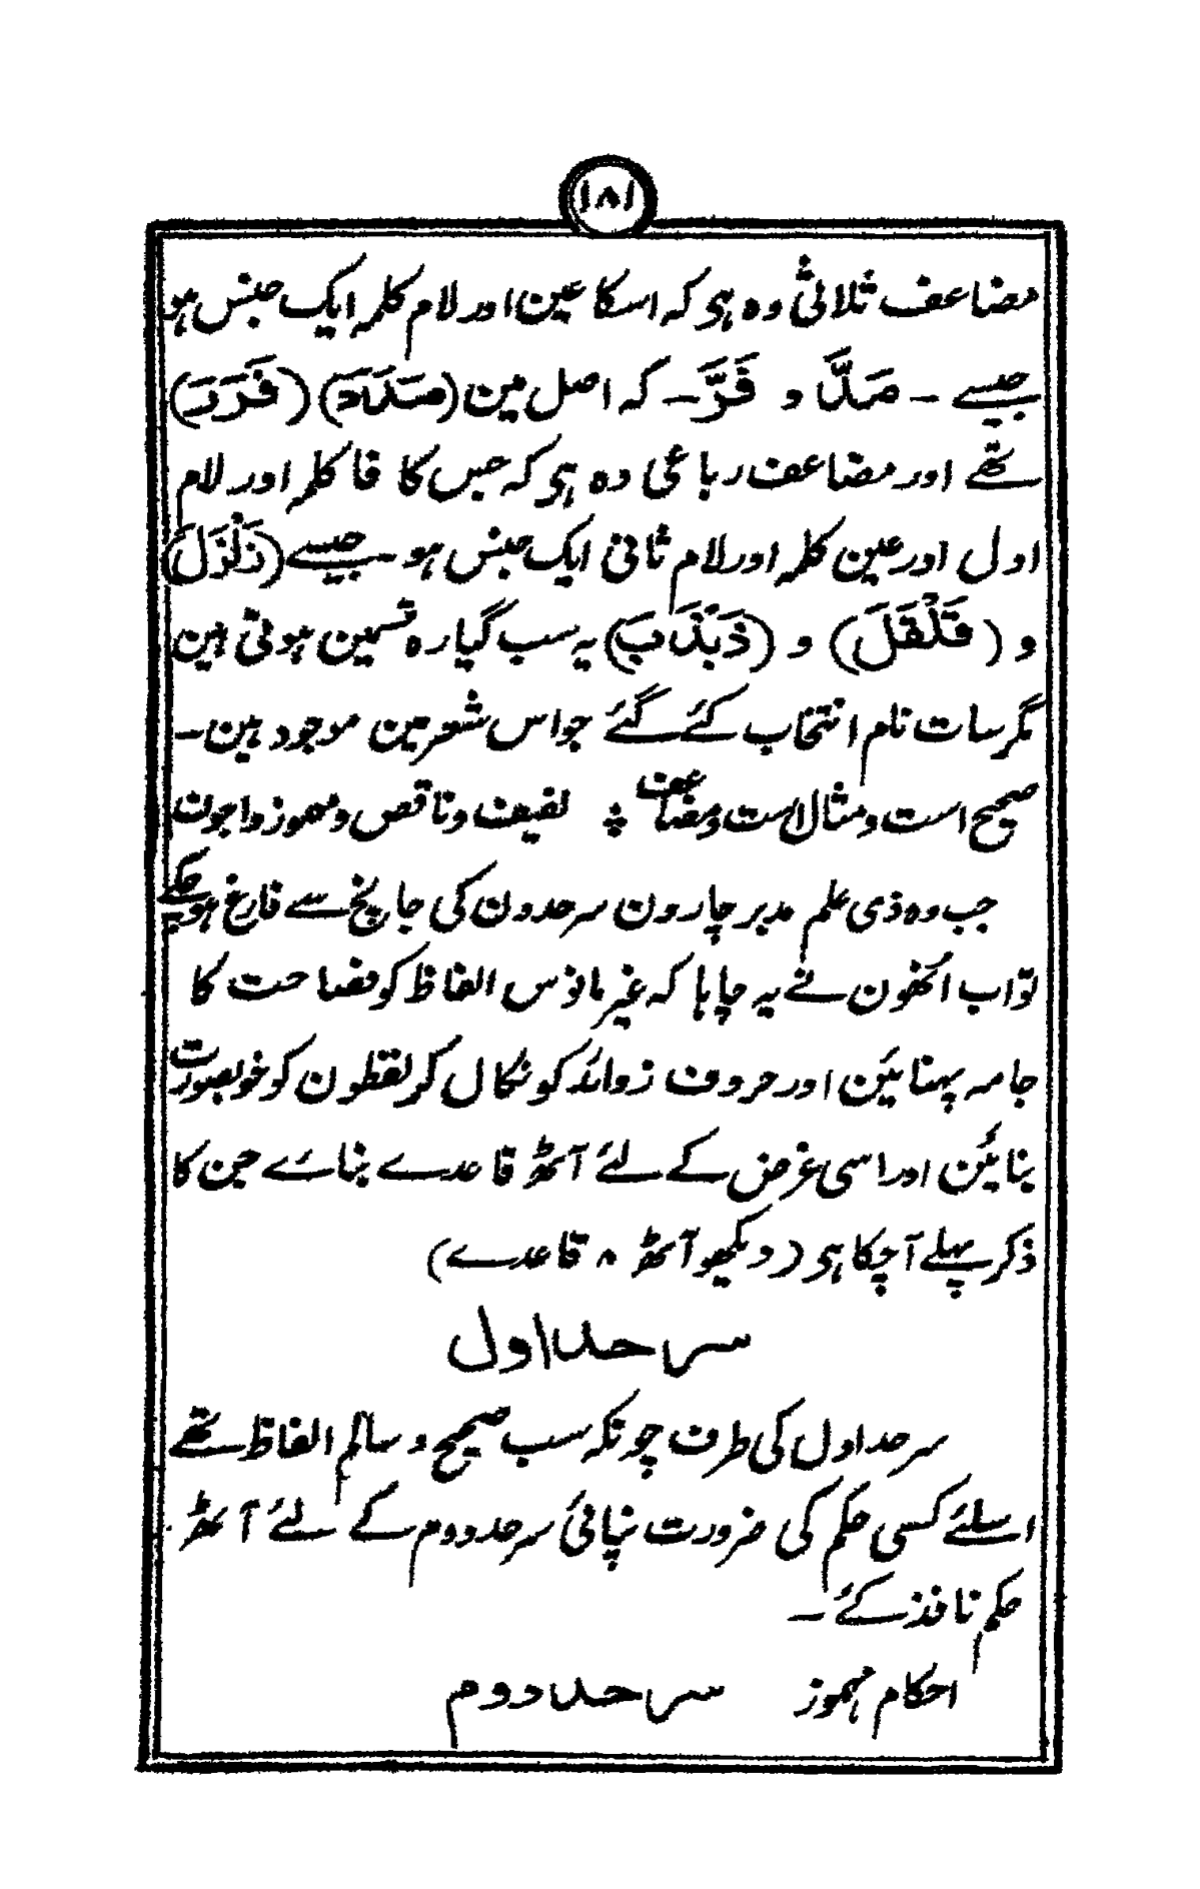 ۱۸۱
مضاعف ثلاثی وہ ہی کہ اسکا عین اور لام کلمہ ایک جنس ہو
جیسے ۔ مَدَّ و فَرَّ۔ کہ اصل مین (مَدَدَ) (فَرَرَ)
تھے اور مضاعف رباعی وہ ہی کہ جس کا فا کلمہ اور لام
اول اور عین کلمہ اور لام ثانی ایک جنس ہو ۔ جیسے (زَلْزَلَ)
و (قَلْقَلَ) و (ذَبْذَبَ) یہ سب گیارہ قسمین ہوتی ہین
مگر سات نام انتخاب کئے گئے جو اس شعر مین موجود ہین۔
صحیح است و مثال است و مضاعف ؞ لفیف و ناقص و مہموز و اجوف
جب وہ ذی علم مدبر چارون سرحدون کی جانچ سے فارغ ہوچکے
تو اب انھون نے یہ چاہا کہ غیر مانوس الفاظ کو فصاحت کا
جامہ پہنائین اور حروف زوائد کو نکال کر لفظون کو خوبصورت
بنائین اور اسی غرض کے لئے آٹھ قاعدے بنائے جن کا
ذکر پہلے آچکا ہی (دیکھو آٹھ ۸ قاعدے)
سرحد اول
سرحد اول کی طرف چونکہ سب صحیح و سالم الفاظ تھے
اسلئے کسی حکم کی ضرورت نپائی سرحد دوم کے لئے آٹھ
حکم نافذ کئے ۔
احکام مہموز سرحد دوم